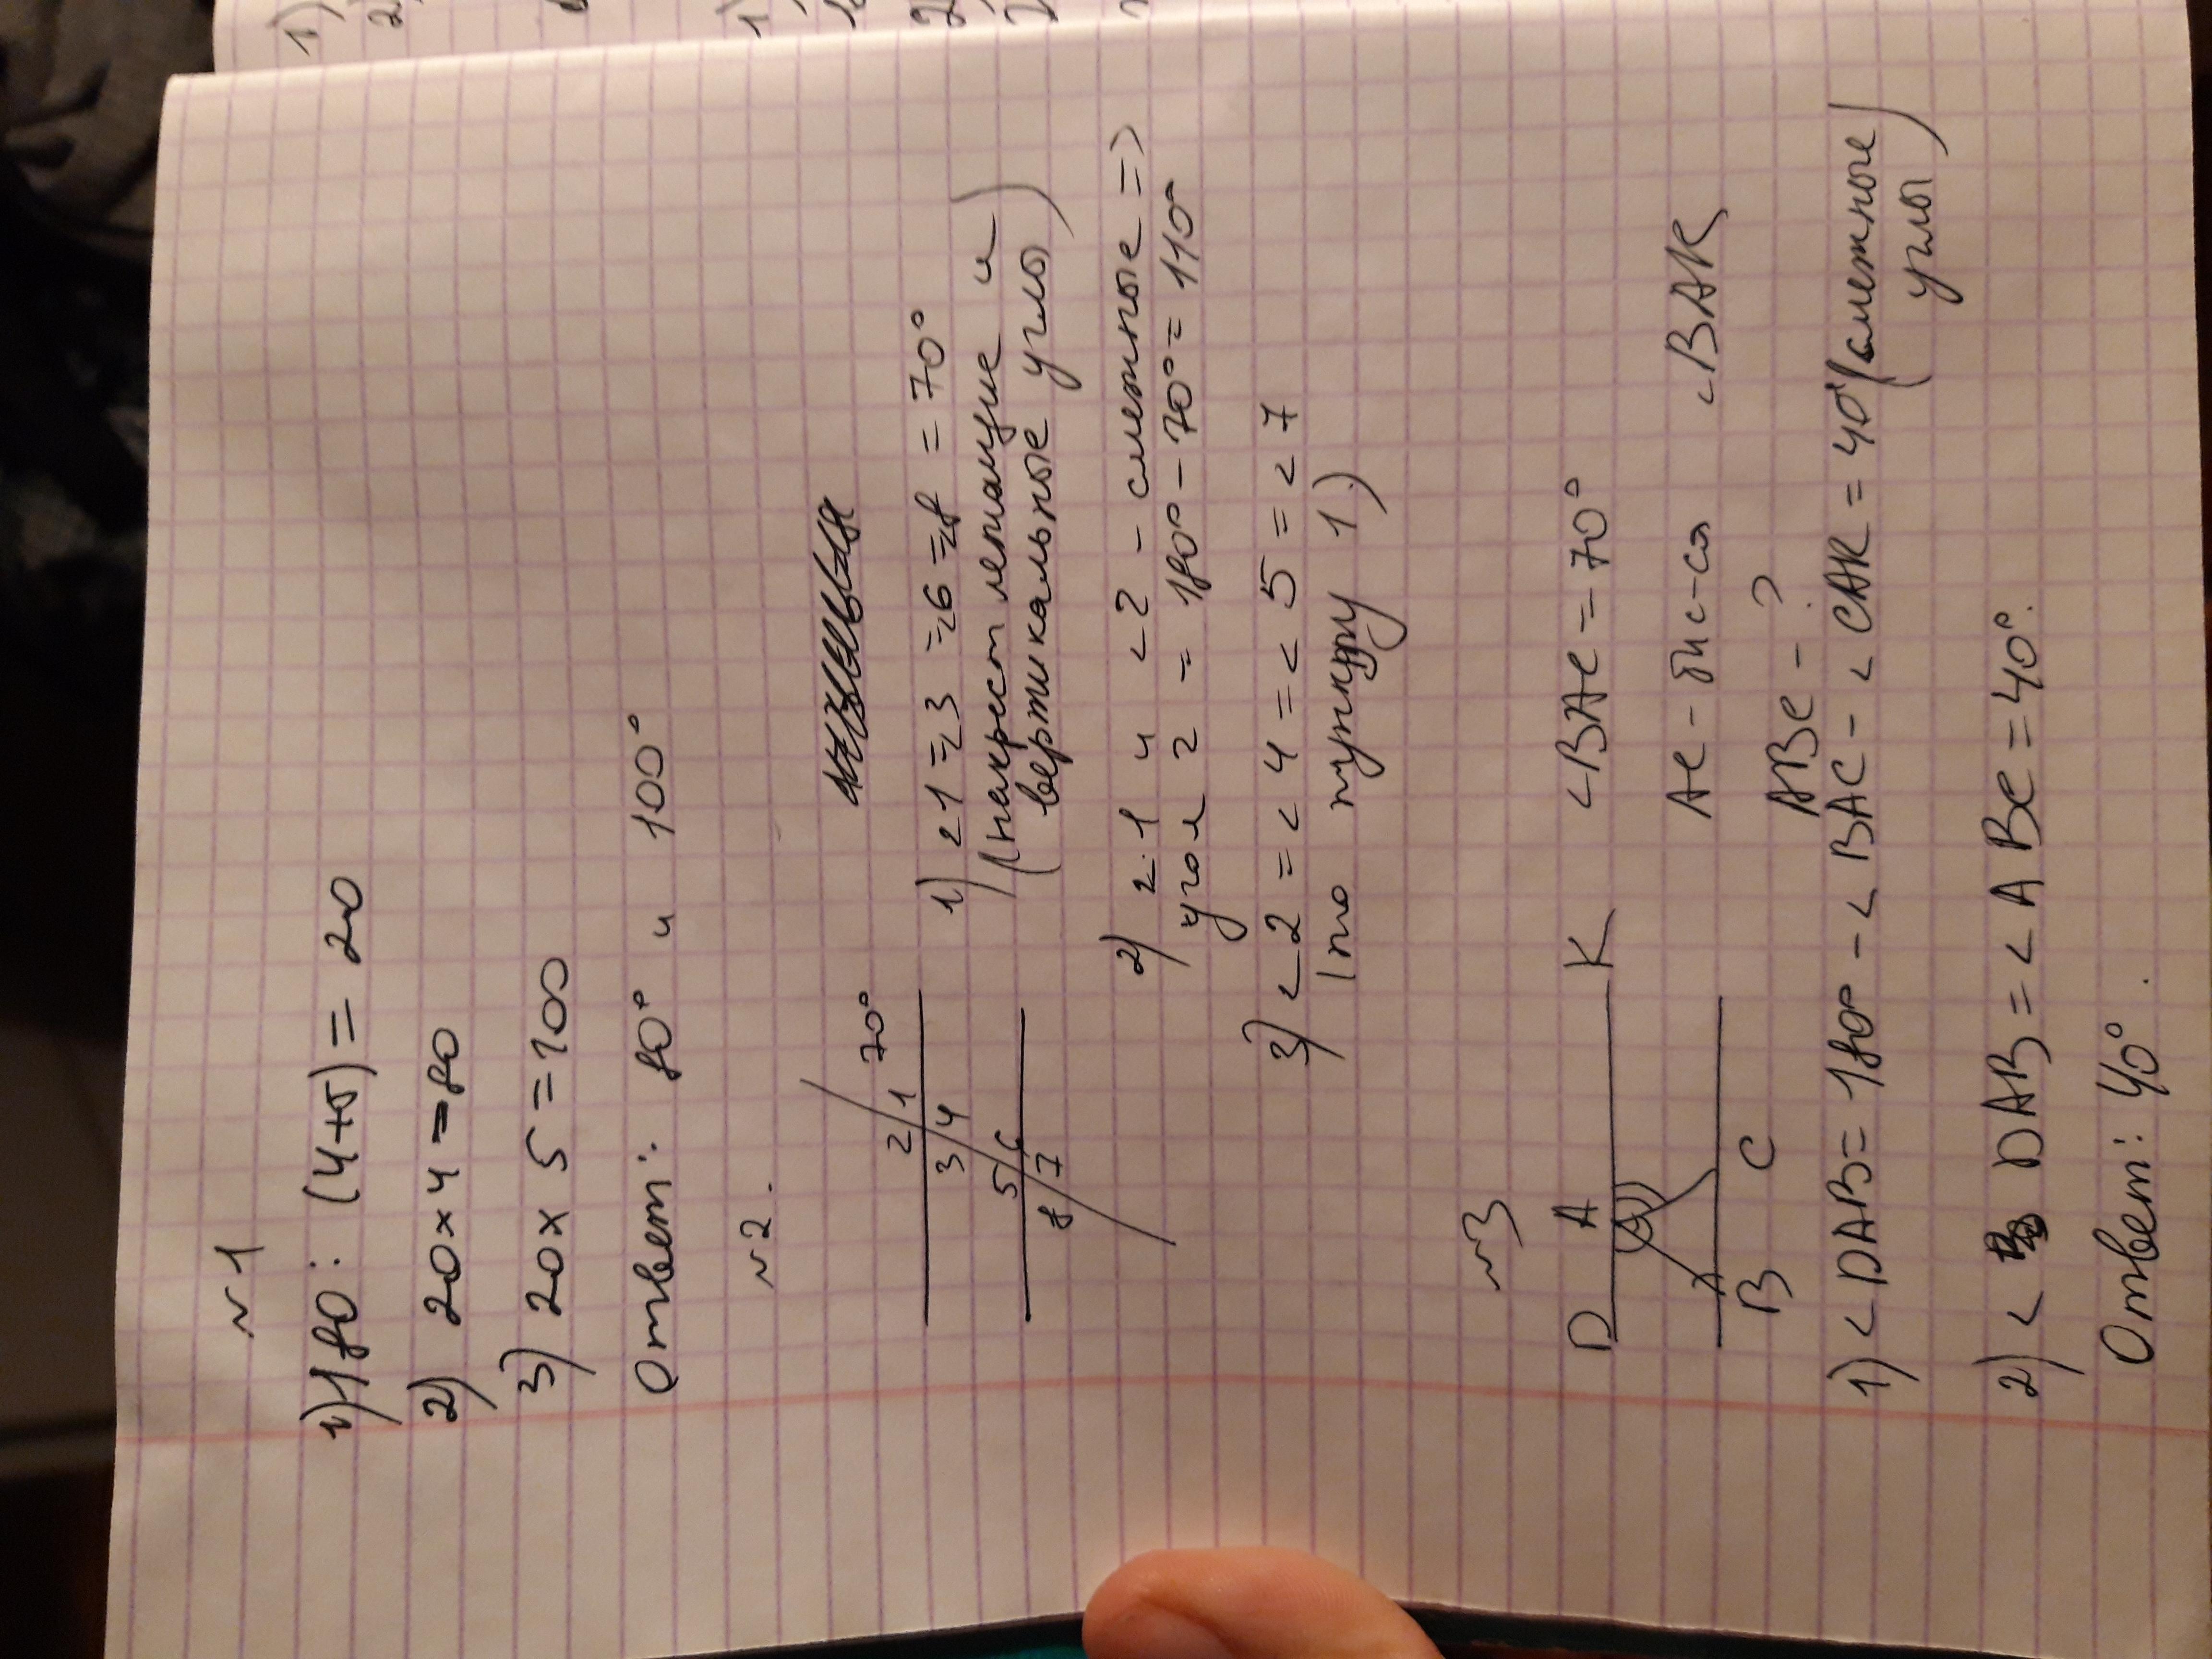 ~1
1) 180 : (4+5) = 20
2) 20 x 4 = 80
3) 20 x 5 = 100
Ответ: 80° и 100°
~2.
70°
2 1
3 4
5 6
8 7
1) <1 = <3 = <6 = <8 = 70°
(накрест лежащие и
вертикальные углы)
2) <1 и <2 - смежные =>
угол 2 = 180° - 70° = 110°
3) <2 = <4 = <5 = <7
(по пункту 1)
~3
D A K
B C
<BAC = 70°
AC - бис-са <BAK
ABC - ?
1) <DAB = 180° - <BAC - <CAK = 40° (смежные
углы)
2) < DAB = < ABC = 40°.
Ответ: 40°.
1)
2)
1)